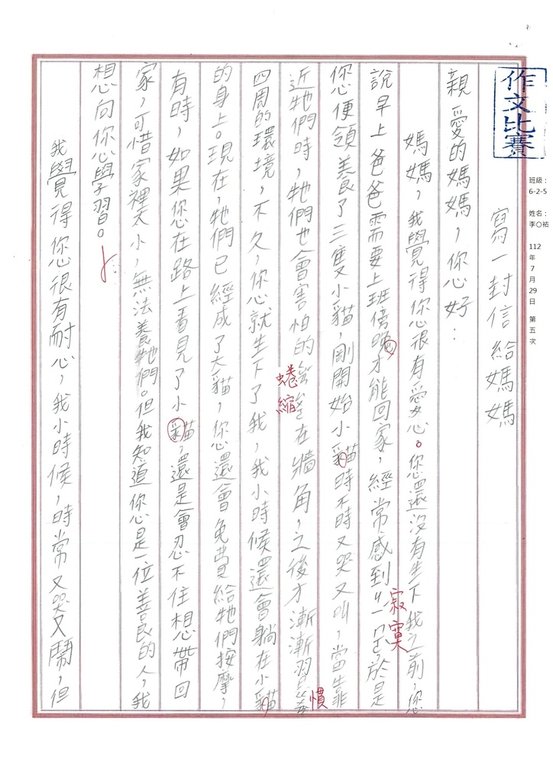 作文比賽
班級:
6-2-5
姓名:
李〇祐
112
年
7
月
29
日
第
五
次
寫一封信給媽媽
親愛的媽媽，您好：
媽媽，我覺得您很有愛心。您還沒有生下我之前，您
說早上爸爸需要上班傍晚才能回家，經常感到
寂寞
於是
您便領養了三隻小貓，剛開始小貓時不時又哭又叫，當靠
近牠們時，牠們也會害怕的
蜷縮
在牆角，之後才漸漸習
慣
四周的環境，不久，您就生下了我，我小時候還會躺在小貓
的身上。現在，牠們已經成了大貓，您還會免費給牠們按摩，
有時，如果您在路上看見了小貓，還是會忍不住想帶回
家，可惜家裡太小，無法養牠們。但我知道您是一位善良的人，我
想向您學習。
我覺得您很有耐心，我小時候，時常又哭又鬧，但